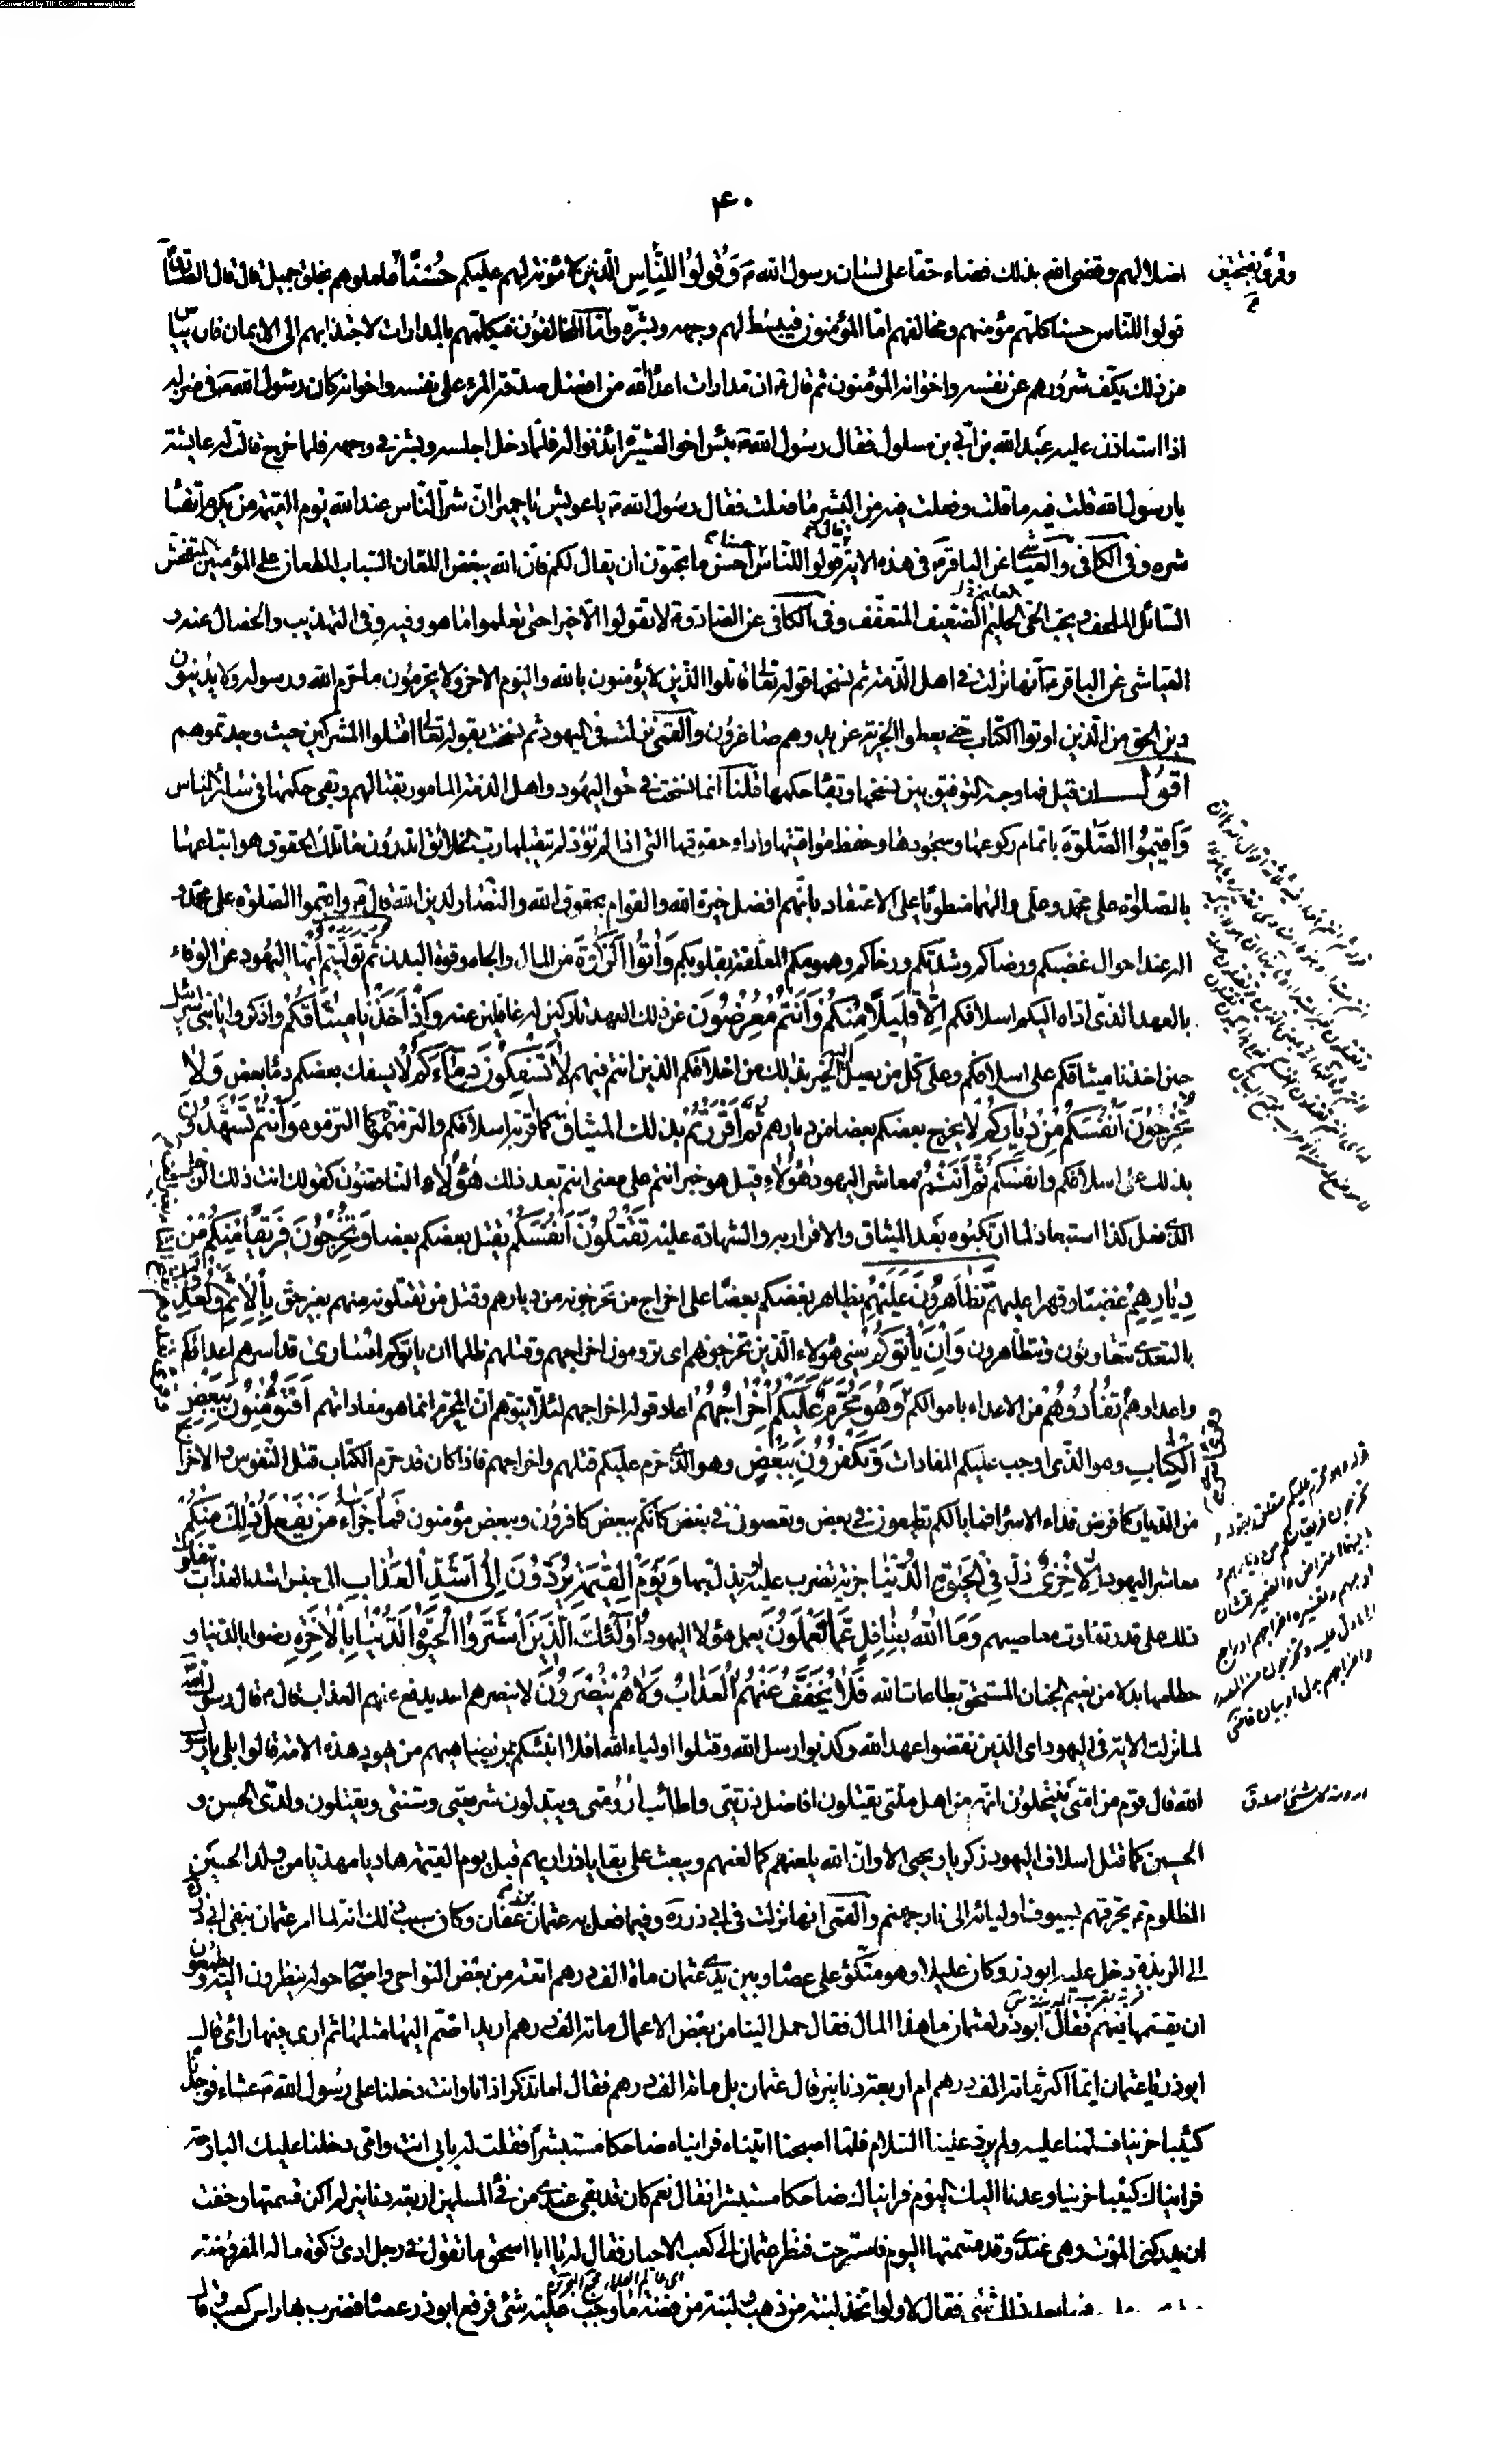 Converted by Tiff Combine - unregistered
۴۰
اضلالهم وقضى الله بذلك قضاء حقا على لسان رسول الله ص وَقُولُوا لِلنَّاسِ الَّذين لا مؤنة لهم عليكم حُسْنًا عاملوهم بخلق جميل قال قال الصادق
قولوا للناس حسنا كلهم مؤمنهم ومخالفهم امّا المؤمنون فيبسط لهم وجهه وبشره وامّا المخالفون فيكلمهم بالمدارات لاجتذابهم الى الايمان فان
من ذلك يكف شرورهم عن نفسه واخوانه المؤمنين ثم قال ان مدارات اعداء الله من افضل صدقة المرء على نفسه واخوانه كان رسول الله ص فى منزله
اذا استاذن عليه عبد الله بن ابى بن سلول فقال رسول الله ص بئس اخو العشيرة ائذنوا له فلمّا دخل اجلسه وبشر فى وجهه فلما خرج قالت له عايشة
يا رسول الله قلت فيه ما قلت وفعلت فيه من البشر ما فعلت فقال رسول الله ص يا عويش يا حميرا انّ شرّ الناس عند الله يوم القيمة من يكرم اتقاء
شره وفى الكافى والعياشى عن الباقر ع فى هذه الاية قولوا للناس احسن ما تحبّون ان يقال لكم فانّ الله يبغض اللعّان السبّاب الطعان على المؤمنين المتفحّش
السّائل الملحف ويحب الحيّى الحليم الضعيف المتعفّف وفى الكافى عن الصادق ع لا تقولوا الّا خيرا حتى تعلموا ما هو وفيه وفى التهذيب والخصال عنه و
العياشى عن الباقر ع انها نزلت فى اهل الذّمة ثم نسخها قوله تعالى قاتلوا الذين لا يؤمنون بالله ولا باليوم الاخر ولا يحرمون ما حرم الله ورسوله ولا يدينون
دين الحق من الذين اوتوا الكتاب حتى يعطوا الجزية عن يد وهم صاغرون والقمى نزلت فى اليهود ثم نسخت بقوله تعالى اقتلوا المشركين حيث وجدتموهم
اقول ان قيل فما وجه التوفيق بين نسخها وبقاء حكمها قلنا انما نسخت فى حق اليهود واهل الذمة المامور بقتالهم وبقى حكمها فى سائر الناس
وَأَقِيمُوا الصَّلوٰةَ باتمام ركوعها وسجودها وحفظ مواقيتها واداء حقوقها التى اذا لم تؤدّ لم يتقبلها رب الخلائق اتدرون ما تلك الحقوق هو اتباعها
بالصلوة على محمد وعلى والهما منطويا على الاعتقاد بانهم افضل خيرة الله والقوام بحقوق الله والنصار لدين الله قال ع واقيموا الصلوة على محمد و
اله عند احوال غضبكم ورضاكم وشدتكم ورخاكم وهمومكم المعلقة بقلوبكم وَاٰتُوا الزَّكوٰةَ من المال والجاه وقوة البدن ثُمَّ تَوَلَّيْتُمْ ايّها اليهود عن الوفاء
بالعهد الذى اداه اليكم اسلافكم اِلَّا قَلِيلًا مِنْكُمْ وَأَنْتُمْ مُعْرِضُونَ عن ذلك العهد تاركين له غافلين عنه وَإِذْ أَخَذْنَا مِيثَاقَكُمْ واذكروا يا بنى اسرائيل
حين اخذنا ميثاقكم على اسلافكم وعلى كل من يصل اليه الخبر بذلك من اخلافكم الذين انتم فيهم لَا تَسْفِكُونَ دِمَاءَكُمْ لا يسفك بعضكم دماء بعض وَلَا
تُخْرِجُونَ أَنْفُسَكُمْ مِنْ دِيَارِكُمْ لا يخرج بعضكم بعضا من ديارهم ثُمَّ أَقْرَرْتُمْ بذلك الميثاق كما اقرّ به اسلافكم والتزمتموه كما التزموه وَأَنْتُمْ تَشْهَدُونَ
بذلك على اسلافكم وانفسكم ثُمَّ أَنْتُمْ معاشر اليهود هٰؤُلَاءِ قيل هو خبر انتم على معنى انتم بعد ذلك هؤلاء الناقضون كقولك انت ذلك الرجل
الذى فعل كذا استبعادا لما ارتكبوه بعد الميثاق والاقرار به والشهادة عليه تَقْتُلُونَ أَنْفُسَكُمْ يقتل بعضكم بعضا وَتُخْرِجُونَ فَرِيقًا مِنْكُمْ مِنْ
دِيَارِهِمْ غضبا وقهرا عليهم تَظَاهَرُونَ عَلَيْهِمْ يظاهر بعضكم بعضًا على اخراج من تخرجونه من ديارهم وقتل من تقتلونه منهم بغير حق بِالْإِثْمِ وَالْعُدْوَانِ
بالتعدى تتعاونون وتتظاهرون وَإِنْ يَأْتُوكُمْ يعنى هؤلاء الذين تخرجونهم اى ترومون اخراجهم وقتلهم ظلما ان ياتوكم أُسَارىٰ قد أسرهم اعداؤكم
واعداؤهم تُفَادُوهُمْ من الاعداء باموالكم وَهُوَ مُحَرَّمٌ عَلَيْكُمْ إِخْرَاجُهُمْ اعاد قوله اخراجهم لئلا يتوهم ان المحرم انما هو مفاداتهم أَفَتُؤْمِنُونَ بِبَعْضِ
الْكِتَابِ وهو الذى اوجب عليكم المفادات وَتَكْفُرُونَ بِبَعْضٍ وهو الذى حرم عليكم قتلهم واخراجهم فاذا كان قد حرم الكتاب قتل النفوس والاخراج
من الديار كما فرض فداء الاسراء فما بالكم تطيعون فى بعض وتعصون فى بعض كانكم ببعض كافرون وببعض مؤمنون فَمَا جَزَاءُ مَنْ يَفْعَلُ ذٰلِكَ مِنْكُمْ
معاشر اليهود اِلَّا خِزْيٌ ذلّ فِي الْحَيٰوةِ الدُّنْيَا جزية تضرب عليه ويذل بها وَيَوْمَ الْقِيٰمَةِ يُرَدُّونَ إِلىٰ أَشَدِّ الْعَذَابِ الى جنس اشد العذاب يتفاوت
ذلك على قدر تفاوت معاصيهم وَمَا اللهُ بِغَافِلٍ عَمَّا تَعْمَلُونَ يعمل هؤلاء اليهود أُولٰئِكَ الَّذِينَ اشْتَرَوُا الْحَيٰوةَ الدُّنْيَا بِالْاٰخِرَةِ رضوا بالدنيا و
حطامها بدلا من نعيم الجنان المستحق بطاعات الله فَلَا يُخَفَّفُ عَنْهُمُ الْعَذَابُ وَلَا هُمْ يُنْصَرُونَ لا ينصرهم احد يدفع عنهم العذاب قال ع قال رسول الله
لما نزلت الاية فى اليهود اى الذين نقضوا عهد الله وكذبوا رسل الله وقتلوا اولياء الله افلا انبئكم بمن يضاهيهم من يهود هذه الامة قالوا بلى يا رسول
الله قال قوم من امتى ينتحلون انهم من اهل ملتى يقتلون افاضل ذريتى واطائب ارومتى ويبدلون شريعتى وسنتى ويقتلون ولدى الحسن و
الحسين كما قتل اسلاف اليهود زكريا ويحيى الا وان الله يلعنهم كما لعنهم ويبعث على بقايا ذراريهم قبل يوم القيمة هاديا مهديا من ولد الحسين
المظلوم ع يحرقهم بسيوف اوليائه الى نار جهنم والقمى انها نزلت فى ابى ذر ره وفيما فعل به عثمان بن عفان وكان سبب ذلك انه لما امر عثمان بنفى ابى ذر
الى الربذة دخل عليه ابو ذر وكان عليلا وهو متكؤ على عصا وبين يدى عثمان ماة الف درهم اتته من بعض النواحى واصحابه حوله ينظرون اليه ويطمعون
ان يقسمها فيهم فقال ابو ذر لعثمان ما هذا المال فقال حمل الينا من بعض الاعمال مائة الف درهم اريد اضم اليها مثلها ثم ارى فيها رائى قال
ابو ذر يا عثمان ايّما اكثر مائة الف درهم ام اربعة دنانير قال عثمان بل مائة الف درهم فقال اما تذكر اذ انا وانت دخلنا على رسول الله ص عشاء فوجدناه
كئيبا حزينا فسلمنا عليه ولم يرد علينا السلام فلما اصبحنا اتيناه فرايناه ضاحكا مستبشرا فقلت له بابى انت وامى دخلنا عليك البارحة
فرايناك كئيبا حزينا وعدنا اليك اليوم فرايناك ضاحكا مستبشرا فقال نعم كان قد بقى عندى من فئ المسلمين اربعة دنانير لم اكن قسمتها وخفت
ان يدركنى الموت وهى عندى وقد قسمتها اليوم فاسترحت فنظر عثمان الى كعب الاحبار فقال له يا ابا اسحق ما تقول فى رجل ادى زكوة ماله المفروضة
فقال لا ولو اتخذ لبنة من ذهب ولبنة من فضة ما وجب عليه شئ فرفع ابو ذر عصا فضرب بها راس كعب وقال